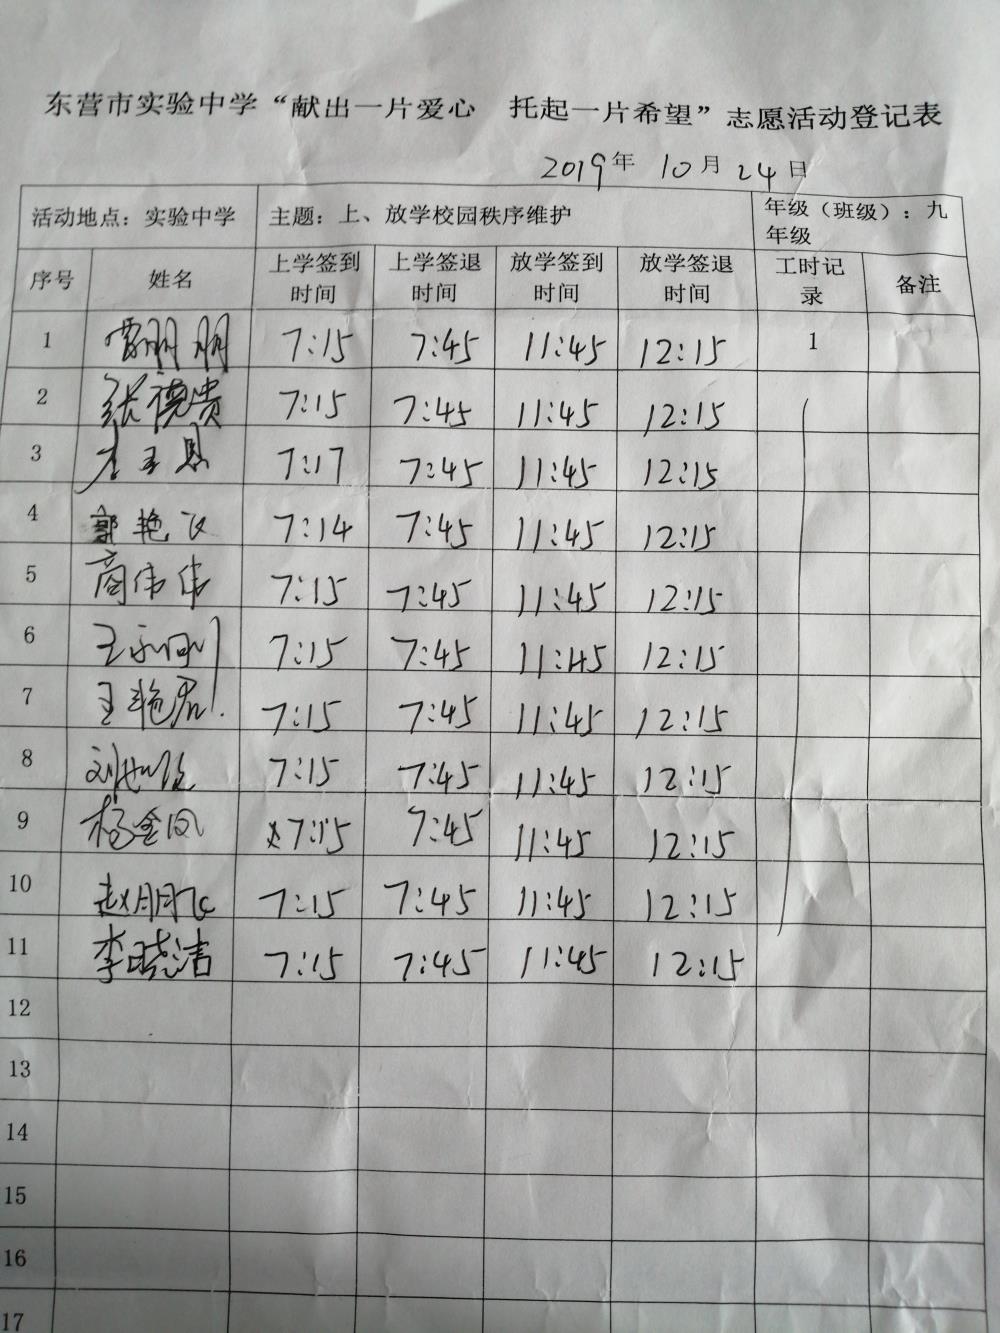 东营市实验中学“献出一片爱心 托起一片希望”志愿活动登记表
2019年 10月 24日
活动地点：实验中学 主题：上、放学校园秩序维护 年级（班级）：九年级
序号 姓名 上学签到时间 上学签退时间 放学签到时间 放学签退时间 工时记录 备注
1 7:15 7:45 11:45 12:15 1
2 张德贵 7:15 7:45 11:45 12:15
3 7:17 7:45 11:45 12:15
4 郭艳飞 7:14 7:45 11:45 12:15
5 商伟伟 7:15 7:45 11:45 12:15
6 王永刚 7:15 7:45 11:45 12:15
7 王艳君 7:15 7:45 11:45 12:15
8 刘 7:15 7:45 11:45 12:15
9 杨金凤 7:15 7:45 11:45 12:15
10 赵朋飞 7:15 7:45 11:45 12:15
11 李晓洁 7:15 7:45 11:45 12:15
12
13
14
15
16
17